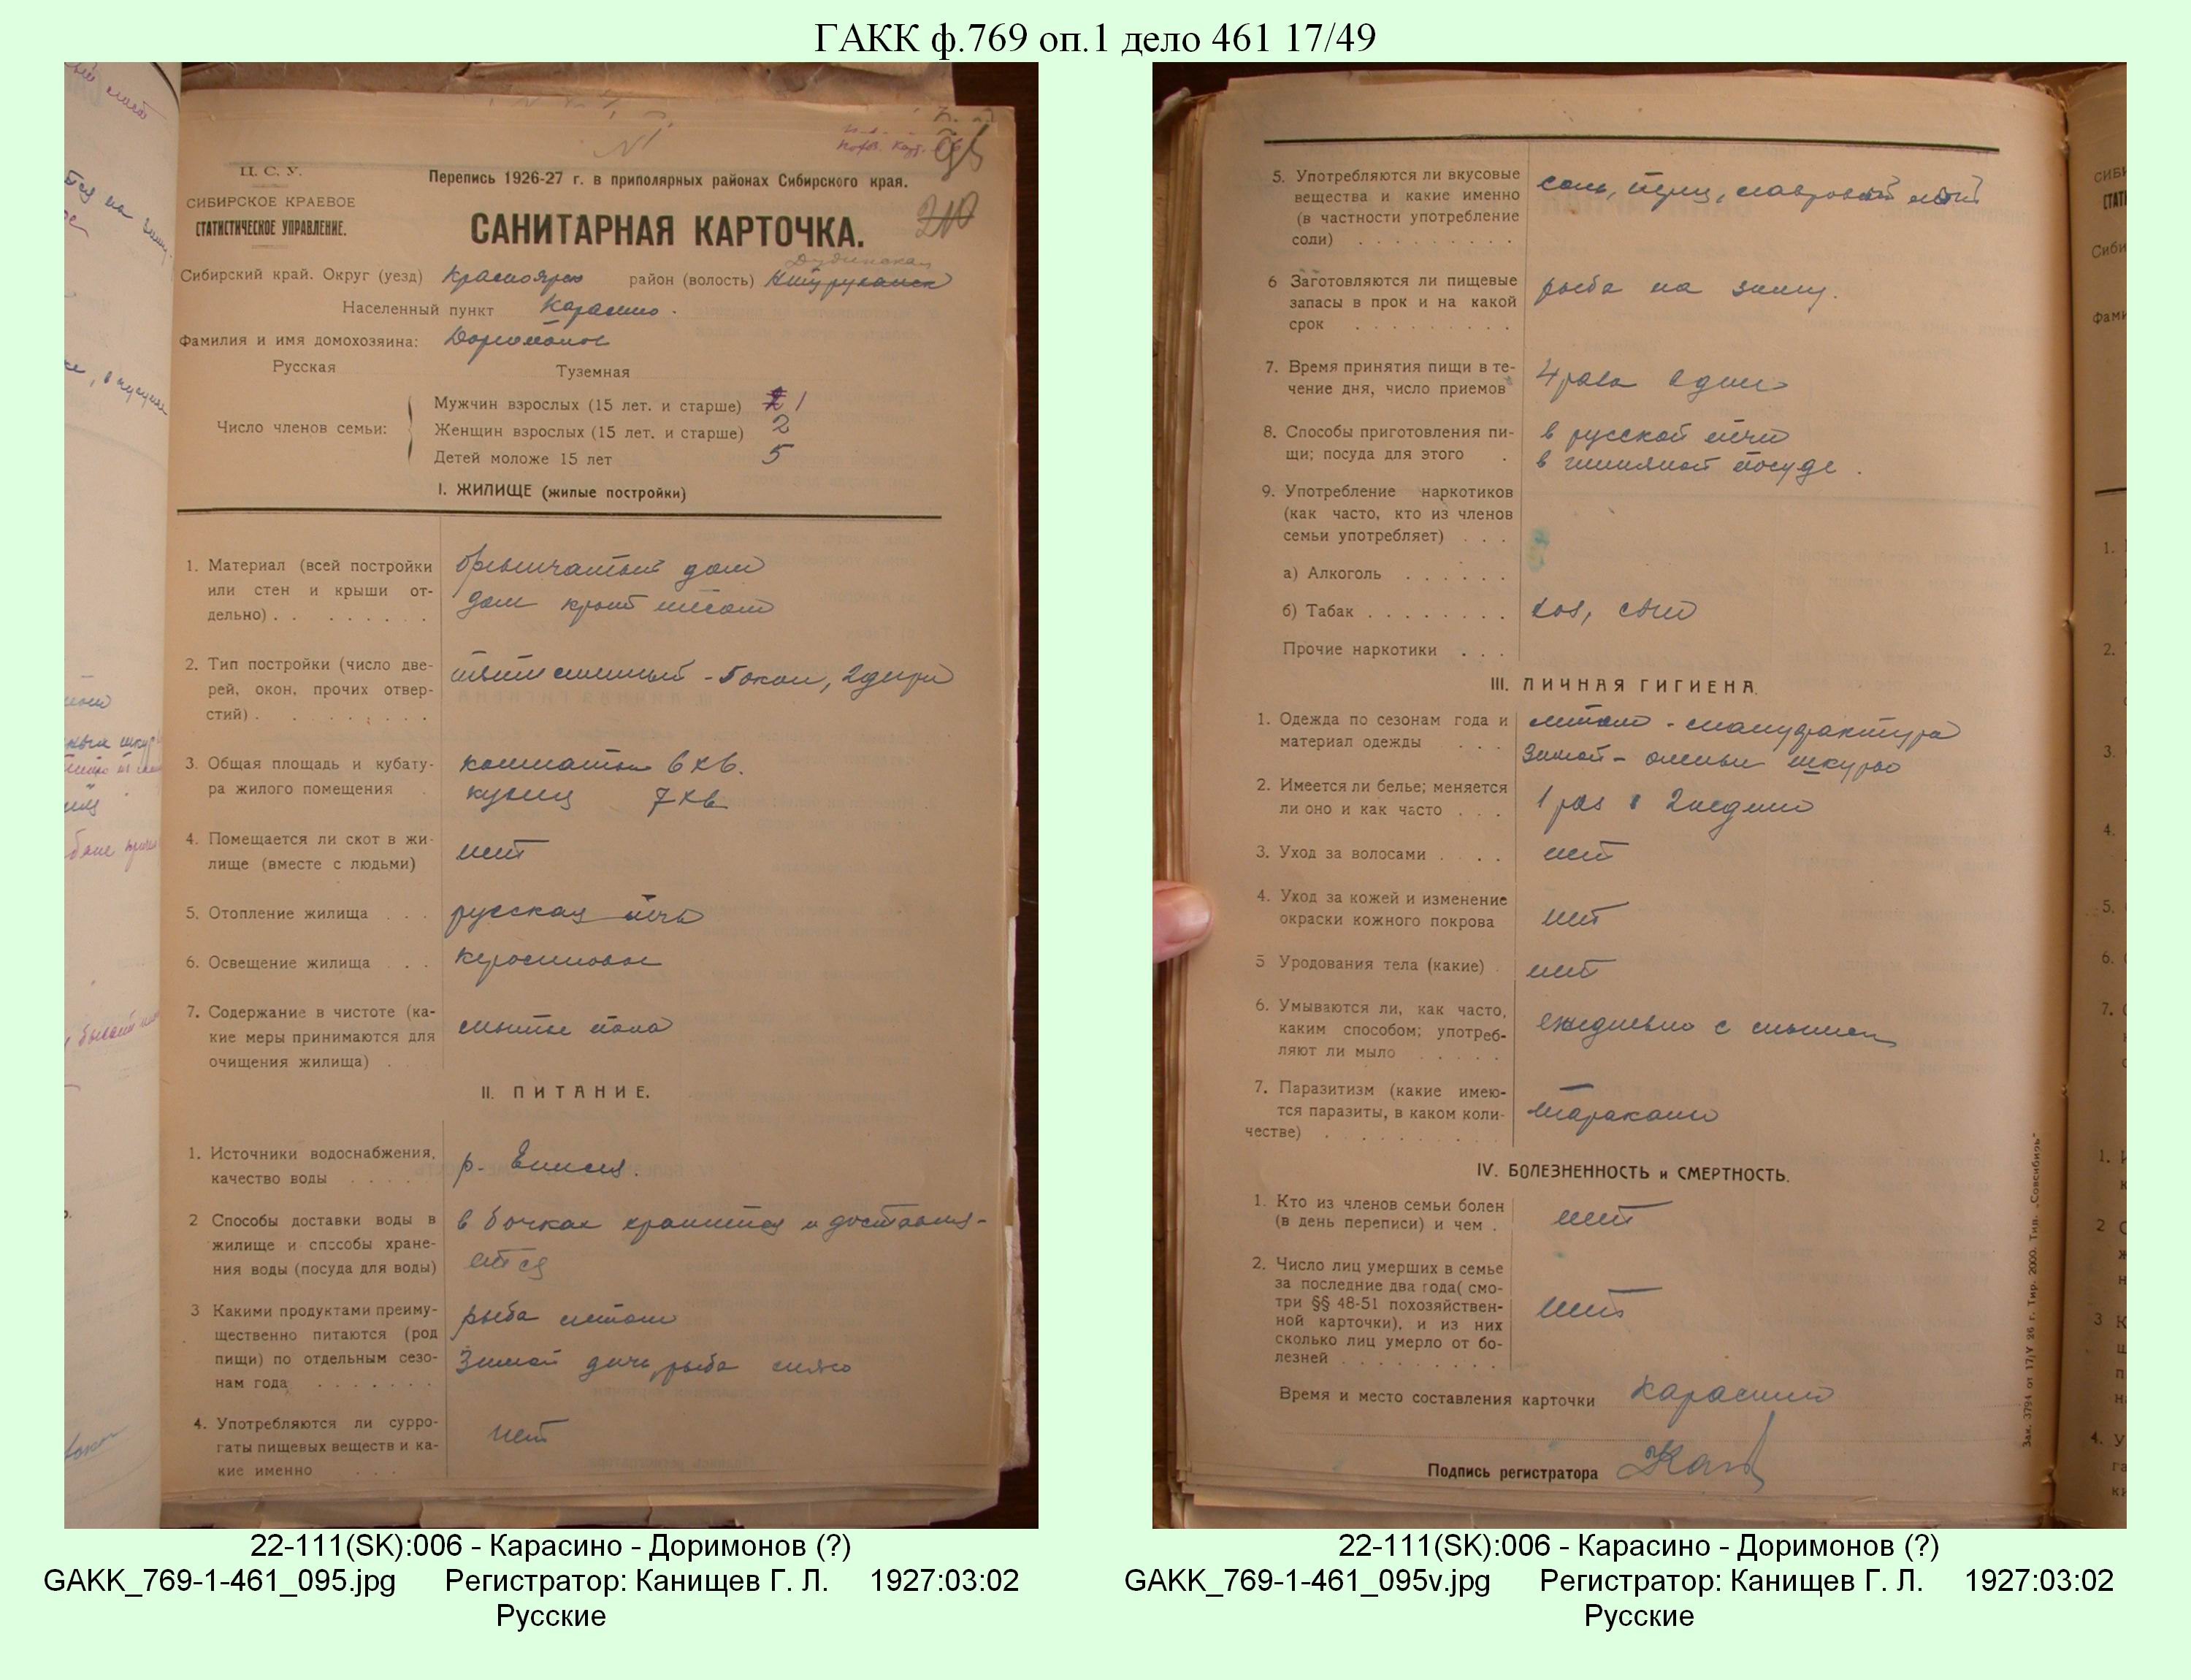 ГАКК ф.769 оп.1 дело 461 17/49
№1
95
210
Ц. С. У.
СИБИРСКОЕ КРАЕВОЕ
СТАТИСТИЧЕСКОЕ УПРАВЛЕНИЕ.
Перепись 1926-27 г. в приполярных районах Сибирского края.
САНИТАРНАЯ КАРТОЧКА.
Дудинский
Сибирский край. Округ (уезд) Красноярск район (волость) Н Туруханск
Населенный пункт Карасино.
Фамилия и имя домохозяина:
Русская Туземная
Число членов семьи:
Мужчин взрослых (15 лет. и старше) 1
Женщин взрослых (15 лет. и старше) 2
Детей моложе 15 лет 5
I. ЖИЛИЩЕ (жилые постройки)
1. Материал (всей постройки
или стен и крыши от-
дельно) . . . . . . . .
дом крыт тесом
2. Тип постройки (число две-
рей, окон, прочих отвер-
стий) . . . . . . . .
пятистенный - 5 окон, 2 двери
3. Общая площадь и кубату-
ра жилого помещения .
комнаты 6 кв.
кухня 7 кв
4. Помещается ли скот в жи-
лище (вместе с людьми)
нет
5. Отопление жилища . . . русская печь
6. Освещение жилища . . . керосиновое
7. Содержание в чистоте (ка-
кие меры принимаются для
очищения жилища) .
мытье пола
II. ПИТАНИЕ.
1. Источники водоснабжения,
качество воды . . . .
р. Енисей.
2 Способы доставки воды в
жилище и способы хране-
ния воды (посуда для воды)
в бочках хранится и доставля-
ется
3 Какими продуктами преиму-
щественно питаются (род
пищи) по отдельным сезо-
нам года . . . . . . .
рыба летом
Зимой дичь, рыба мясо
4. Употребляются ли сурро-
гаты пищевых веществ и ка-
кие именно . . .
нет
5. Употребляются ли вкусовые
вещества и какие именно
(в частности употребление
соли) . . . . . . . . .
соль, перец, лавровый лист
6 Заготовляются ли пищевые
запасы в прок и на какой
срок . . . . . . . . .
рыба на зиму.
7. Время принятия пищи в те-
чение дня, число приемов
4 раза в день
8. Способы приготовления пи-
щи; посуда для этого .
в русской печи
в глиняной посуде.
9. Употребление наркотиков
(как часто, кто из членов
семьи употребляет) . . .
а) Алкоголь . . . . . .
б) Табак . . . . . . . . хоз, сын
Прочие наркотики . . .
III. ЛИЧНАЯ ГИГИЕНА.
1. Одежда по сезонам года и
материал одежды . . .
летом - мануфактура
Зимой - оленьи шкуры
2. Имеется ли белье; меняется
ли оно и как часто . . .
1 раз в 2 недели
3. Уход за волосами . . . . нет
4. Уход за кожей и изменение
окраски кожного покрова
нет
5 Уродования тела (какие) . нет
6. Умываются ли, как часто,
каким способом; употреб-
ляют ли мыло . . . . .
ежедневно с мылом
7. Паразитизм (какие имею-
тся паразиты, в каком коли-
честве) . . . . . . . . . .
тараканы
IV. БОЛЕЗНЕННОСТЬ и СМЕРТНОСТЬ.
1. Кто из членов семьи болен
(в день переписи) и чем .
нет
2. Число лиц умерших в семье
за последние два года( смо-
три §§ 48-51 похозяйствен-
ной карточки), и из них
сколько лиц умерло от бо-
лезней . . . . . . . . .
нет
Время и место составления карточки Карасино
Подпись регистратора
Зак. 3794 от 17/V 26 г. Тир. 2000. Тип. „Совсибирь"
22-111(SK):006 - Карасино - Доримонов (?)
GAKK_769-1-461_095.jpg Регистратор: Канищев Г. Л. 1927:03:02
Русские
22-111(SK):006 - Карасино - Доримонов (?)
GAKK_769-1-461_095v.jpg Регистратор: Канищев Г. Л. 1927:03:02
Русские